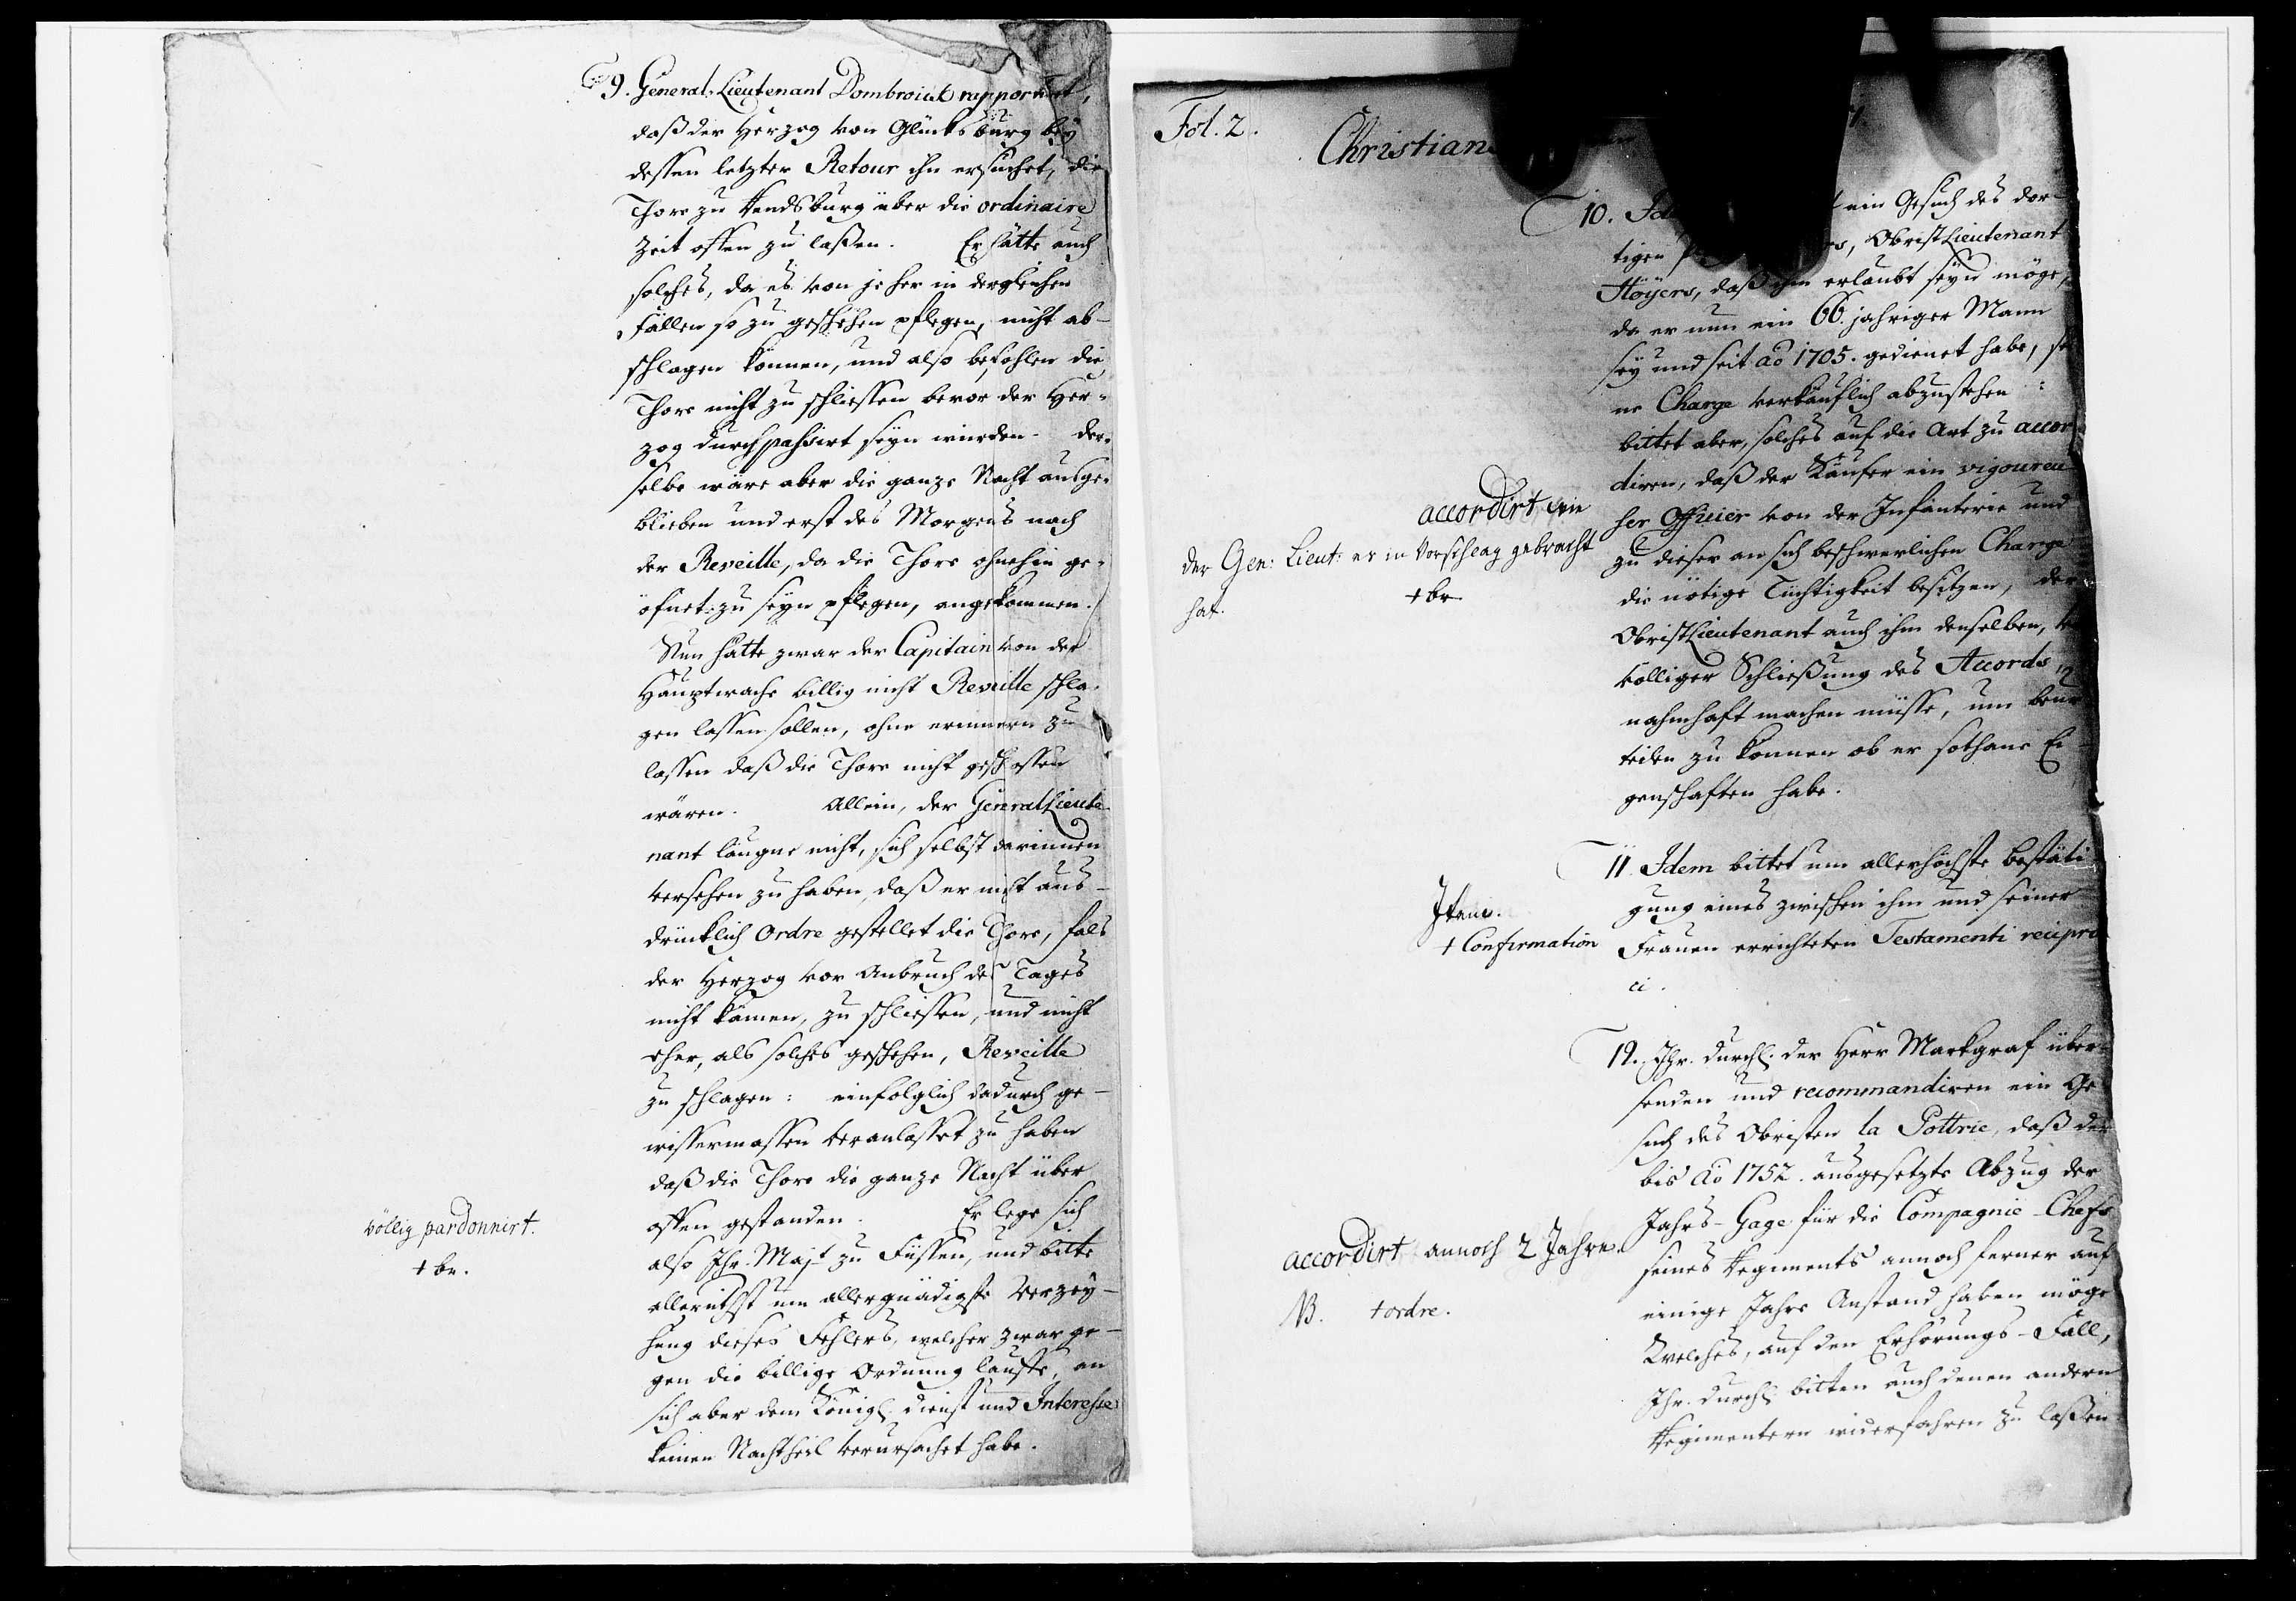 9. General-Lieutenant Dombroick rapportirt,
daß der Herzog von Glücksburg bey
dessen letzter Retour ihn ersuchet, die
Thore zu Rendsburg über die ordinaire
Zeit offen zu laßen. Er hätte auch
solches, da es von je her in dergleichen
Fällen so zu geschehen pflegen, nicht ab-
schlagen können, und also befohlen die
Thore nicht zu schliessen bevor der Her-
zog durchpassirt seyn würden. Der-
selbe wäre aber die ganze Nacht ausge-
blieben und erst des Morgens nach
der Reveille, da die Thore ohnehin ge-
öfnet zu seyn pflegen, angekommen.
Nun hätte zwar der Capitain von der
Hauptwache billig nicht Reveille schla-
gen lassen sollen, ohne erinnern zu
lassen daß die Thore nicht geschlossen
wären. Allein, der General Lieute-
nant läugne nicht, sich selbst darinnen
versehen zu haben, daß er nicht aus-
drücklich Ordre gestellet die Thore, fals
der Herzog vor Anbruch des Tages
nicht kämen, zu schliessen, und nicht
eher, als solches geschehen, Reveille
zu schlagen: einfolglich dadurch ge-
wissermassen veranlasset zu haben
daß die Thore die ganze Nacht über
offen gestanden. Er lege sich
also Ihr. Majt zu Füssen, und bitte
allerutst um allergnädigste Verzey-
hung dieses Fehlers, welcher zwar ge-
gen die billige Ordnung lauffe, an
sich aber dem Königl. Dienst und Interesse
keinen Nachtheil verursachet habe.
völlig pardonnirt.
+ br.
Fol. 2.
Christians
10. ein Gesuch des dor-
tigen Obrist Lieutenant
Höyers, daß ihm erlaubt seyn möge,
da er nun ein 66. jahriger Mann
sey und seit ao 1705. gedienet habe, sei
ne Charge verkäuflich abzustehen:
bittet aber, solches auf die Art zu accor
diren, daß der Käufer ein vigoureu
ser Officier von der Infanterie und
zu dieser an sich beschwerlichen Charge
die nötige Tüchtigkeit besitzen, der
Obrist Lieutenant auch ihm denselben,
völliger Schließung des Accords,
nahmhaft machen müsse, um beur
teilen zu können ob er sothane Ei-
genschaften habe.
accordirt wie
der Gen: Lieut: es in Vorschlag gebracht
hat.
+ br
11. Idem bittet um allerhöchste bestäti-
gung eines zwischen ihm und seiner
Frauen errichteten Testamenti recipro
ci.
+ Confirmation
12. Ihr. Durchl. der Herr Markgraf über-
senden und recommandiren ein Ge
such des Obristen la Pottrie, daß der
bis ao 1752. ausgesetzte Abzug der
Jahrs-Gage für die Compagnie-Chefs
seines Regiments annoch ferner auf
einige Jahre Anstand haben möge
Welches, auf den Erhörungs-Fall,
Ihr. Durchl. bitten auch denen andern
Regimentern wiederfahren zu laßen
accordirt annoch 2 Jahre.
NB. + ordre.